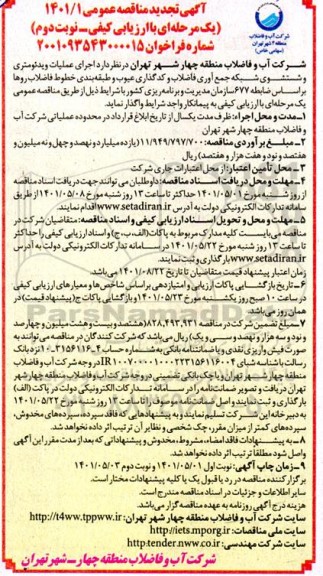 آگهی تجدید مناقصه عمومی ۱۴۰۱/۱
(یک مرحله‌ای با ارزیابی کیفی ـ نوبت دوم)
شماره فراخوان ۲۰۰۱۰۹۳۵۴۳۰۰۰۰۱۵
شرکت آب و فاضلاب
منطقه ۴ شهر تهران
(سهامی خاص)
شرکت آب و فاضلاب منطقه چهار شهر تهران در نظر دارد اجرای عملیات ویدئومتری
و شستشوی شبکه جمع آوری فاضلاب و کدگذاری عیوب و طبقه‌بندی خطوط فاضلاب روها
براساس ضابطه ۶۷۷ سازمان مدیریت و برنامه‌ریزی کشور با شرایط ذیل از طریق مناقصه عمومی
یک مرحله‌ای با ارزیابی کیفی به پیمانکار واجد شرایط واگذار نماید.
۱ـ مدت و محل اجراء: ظرف مدت یکسال از تاریخ ابلاغ قرارداد در محدوده عملیاتی شرکت آب
و فاضلاب منطقه چهار شهر تهران
۲ـ مبلغ برآوردی مناقصه: ۱۱/۹۴۹/۷۹۷/۷۰۰ (یازده میلیارد و نهصد و چهل و نه میلیون و
هفتصد و نود و هفت هزار و هفتصد) ریال
۳ـ محل تأمین اعتبار: از محل اعتبارات جاری شرکت
۴ـ مهلت و محل دریافت اسناد مناقصه: داوطلبان می‌توانند جهت دریافت اسناد مناقصه
از روز شنبه مورخ ۱۴۰۱/۰۵/۰۱ حداکثر تا ساعت ۱۳ روز شنبه مورخ ۱۴۰۱/۰۵/۰۸ از طریق
سامانه تدارکات الکترونیکی دولت به آدرس www.setadiran.ir اقدام نمایند.
۵ـ مهلت و محل و تحویل اسناد ارزیابی کیفی و اسناد مناقصه: متقاضیان شرکت در
مناقصه می‌بایست کلیه مدارک مربوط به پاکات (الف، ب، ج) و اسناد ارزیابی کیفی را حداکثر
تا ساعت ۱۳ روز شنبه مورخ ۱۴۰۱/۰۵/۲۲ در سامانه تدارکات الکترونیکی دولت به آدرس
www.setadiran.ir بارگذاری و ثبت نمایند.
زمان اعتبار پیشنهاد قیمت متقاضیان تا تاریخ ۱۴۰۱/۰۸/۲۲ می‌باشد.
۶ـ تاریخ بازگشایی پاکات ارزیابی و امتیازدهی براساس شاخص‌ها و معیارهای ارزیابی کیفی
در ساعت ۱۰ صبح روز یکشنبه مورخ ۱۴۰۱/۰۵/۲۳ و بازگشایی پاکات ج (پیشنهاد قیمت) در
همان روز می‌باشد.
۷ـ مبلغ تضمین شرکت در مناقصه ۸۲۸,۴۹۳,۹۳۱ (هشتصد و بیست و هشت میلیون و چهارصد
و نود و سه هزار و نهصد و سی و یک) ریال می‌باشد که شرکت کنندگان در مناقصه می‌توانند به
صورت فیش واریزی نقدی و یا ضمانتنامه بانکی به شماره حساب
نزد بانک
رسالت با شناسه شبای
در وجه شرکت آب و فاضلاب
منطقه چهار شهر تهران و یا چک بانکی تضمینی در وجه شرکت آب و فاضلاب منطقه چهار شهر
تهران دریافت و تصویر ضمانت‌نامه را در سامانه تدارکات الکترونیکی دولت در پاکت (الف)
بارگذاری و ثبت نمایند و اصل ضمانت‌نامه مزبور را تا ساعت ۱۳ روز شنبه مورخ ۱۴۰۱/۰۵/۲۲
به دبیرخانه این شرکت تسلیم نمایند و به پیشنهادهایی که فاقد سپرده، سپرده‌های مخدوش،
سپرده‌های کمتر از میزان مقرر، چک شخصی و نظایر آن ترتیب اثر داده نخواهد شد.
۸ـ به پیشنهادات فاقد امضاء، مشروط، مخدوش و پیشنهاداتی که بعد از مدت مقرر این آگهی
واصل شود مطلقا ترتیب اثر داده نخواهد شد.
۹ـ زمان چاپ آگهی: نوبت اول ۱۴۰۱/۰۵/۰۱ و نوبت دوم ۱۴۰۱/۰۵/۰۲
برگزارکننده مناقصه در رد یا قبول یک یا کلیه پیشنهادات مختار است.
سایر اطلاعات و جزئیات در اسناد مناقصه مندرج است.
هزینه درج آگهی روزنامه به عهده مناقصه گزار می‌باشد.
سایت شرکت آب و فاضلاب منطقه چهار شهر تهران: http://t4ww.tppww.ir
سایت ملی مناقصات: http://iets.mporg.ir
سایت شرکت مهندسی: http:tender.nww.co.ir
شرکت آب و فاضلاب منطقه چهار ـ شهر تهران